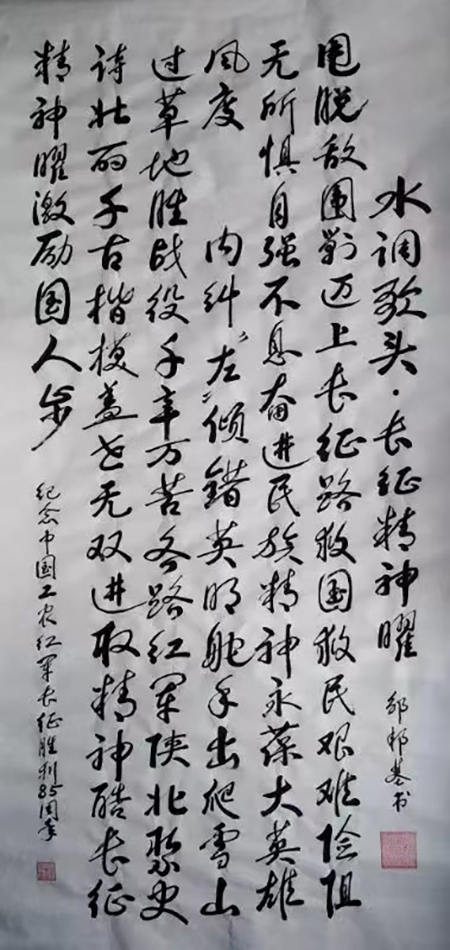 水调歌头·长征精神曜
甩脱敌围剿迈上长征路救国救民艰难险阻
无所惧自强不息奋进民族精神永葆大英雄
风度 内纠“左”倾错英明舵手出爬雪山
过草地胜战役千辛万苦各路红军陕北聚史
诗壮丽千古楷模盖世无双进取精神酷长征
精神曜激励国人步
纪念中国工农红军长征胜利85周年